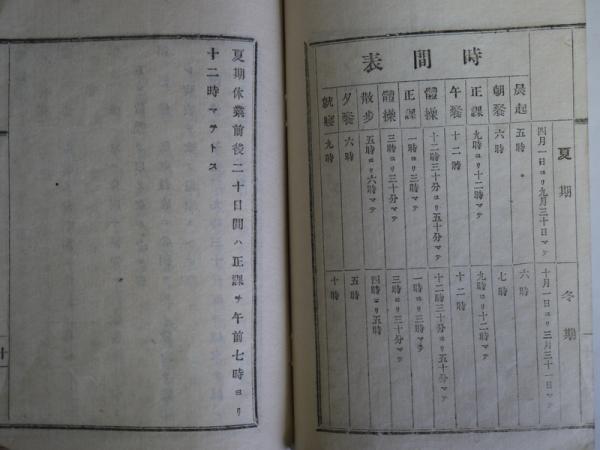 時間表
夏期 冬期
四月一日ヨリ九月三十日マテ 十月一日ヨリ三月三十一日マテ
晨起 五時 六時
朝餐 六時 七時
正課 九時ヨリ十二時マテ 九時ヨリ十二時マテ
午餐 十二時 十二時
體操 十二時三十分ヨリ五十分マテ 十二時三十分ヨリ五十分マテ
正課 一時ヨリ三時マテ 一時ヨリ三時マテ
體操 三時ヨリ三十分マテ 三時ヨリ三十分マテ
散步 五時ヨリ六時マテ 四時ヨリ五時
夕餐 六時 五時
就寢 九時 十時
夏期休業前後二十日間ハ正課ヲ午前七時ヨリ
十二時マテトス